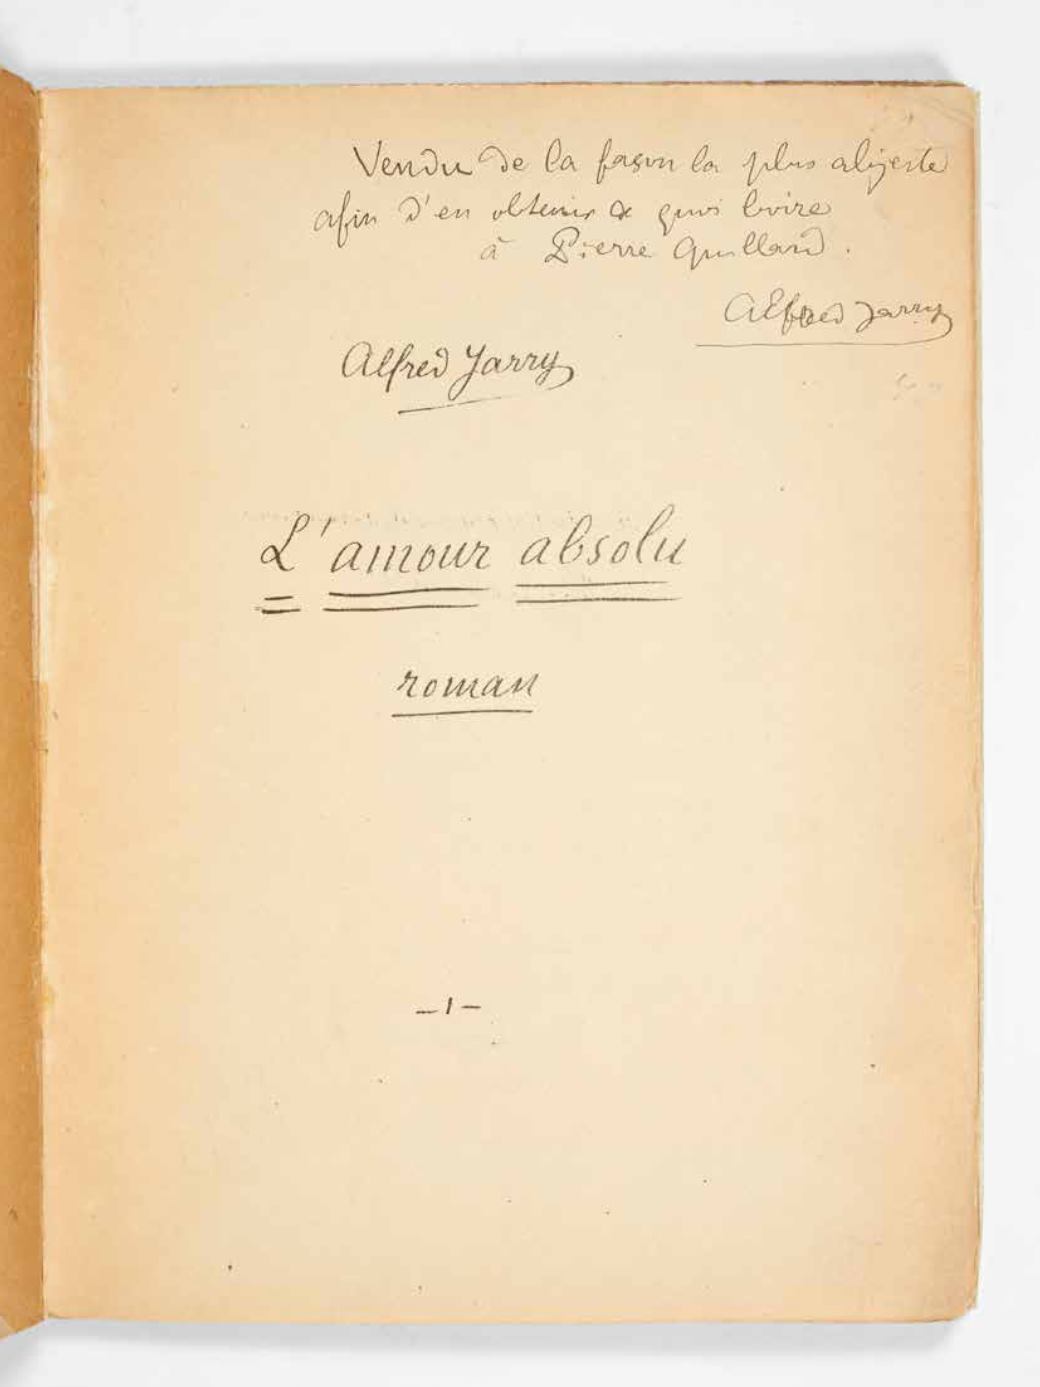 Vendu de la façon la plus abjecte
afin d'en obtenir de quoi boire
à Pierre Quillard.
Alfred Jarry
Alfred Jarry
L'amour absolu
roman
– 1 –